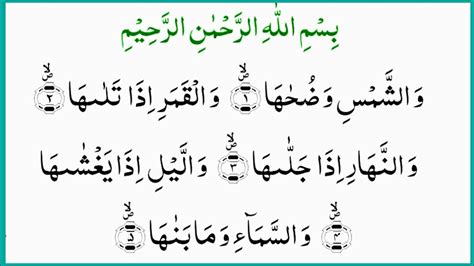 بِسْمِ اللهِ الرَّحْمٰنِ الرَّحِيْمِ
وَالشَّمْسِ وَضُحٰىهَا ۙ﴿۱﴾ وَالْقَمَرِ اِذَا تَلٰىهَا ۙ﴿۲﴾
وَالنَّهَارِ اِذَا جَلّٰىهَا ۙ﴿۳﴾ وَالَّيْلِ اِذَا يَغْشٰىهَا
ۙ﴿۴﴾ وَالسَّمَآءِ وَمَا بَنٰىهَا ۙ﴿۵﴾